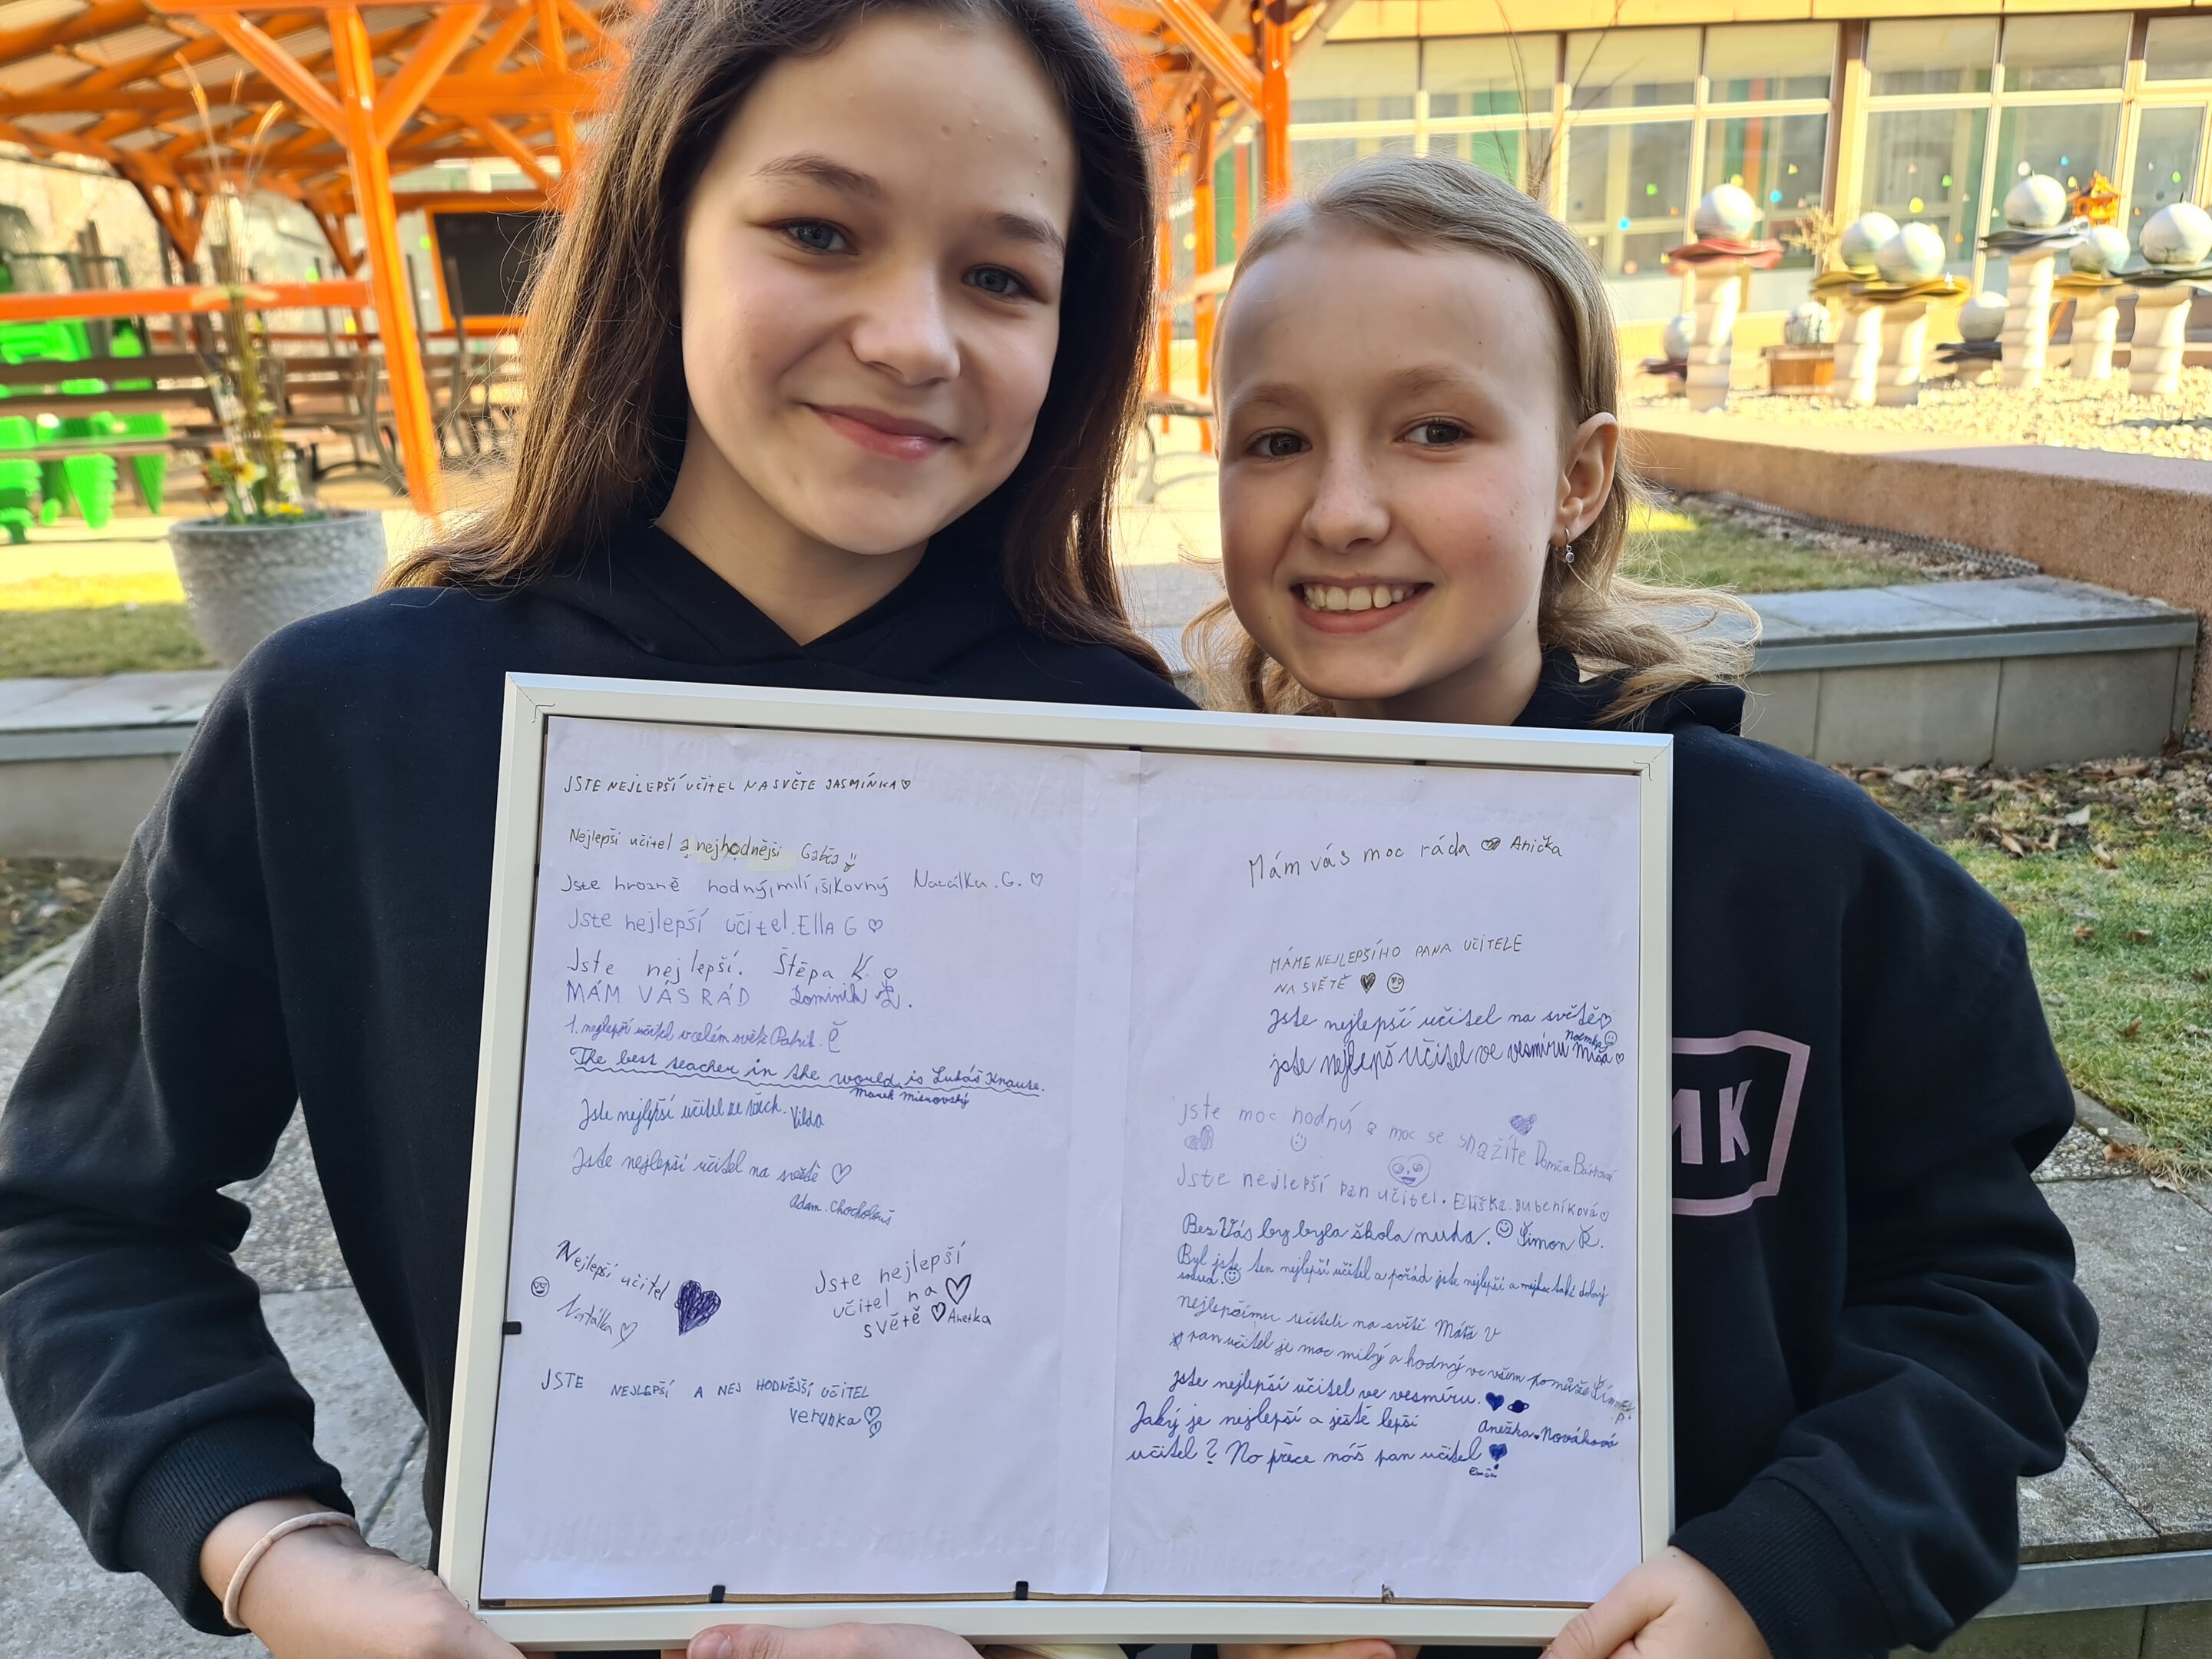 JSTE NEJLEPŠÍ UČITEL NA SVĚTE JASMÍNKA
Nejlepší učitel a nejhodnější Gabča
Jste hrozně hodný, milí, šikovný Natálka. G.
Jste nejlepší učitel. Ella G
Jste nejlepší. Štěpa K.
MÁM VÁS RÁD Dominik
1. nejlepší učitel v celém světě Patrik. Č
The best teacher in the world is Lukáš Knause.
Marek
Jste nejlepší učitel ze všech. Vilda
Jste nejlepší učitel na světě
Adam. Chocholouš
Nejlepší učitel
Natálka
Jste nejlepší
učitel na
světě Anetka
JSTE NEJLEPŠÍ A NEJ HODNĚJŠÍ UČITEL
verunka
Mám vás moc ráda Anička
MÁME NEJLEPŠÍHO PANA UČITELE
NA SVĚTĚ
Jste nejlepší učitel na světě
Noemka
jste nejlepš učitel ve vesmíru Míša
jste moc hodný a moc se snažíte Domča Bártová
Jste nejlepší pan učitel. Eliška. Bubeníková
Bez Vás by byla škola nuda. Šimon Ř.
Byl jste ten nejlepší učitel a pořád jste nejlepší a také dobrý
soused.
nejlepšímu učiteli na světě Máťa V
pan učitel je moc milý a hodný ve všem pomůže
jste nejlepší učitel ve vesmíru.
Anežka Nováková
Jaký je nejlepší a ještě lepší
učitel? No přece náš pan učitel
MK